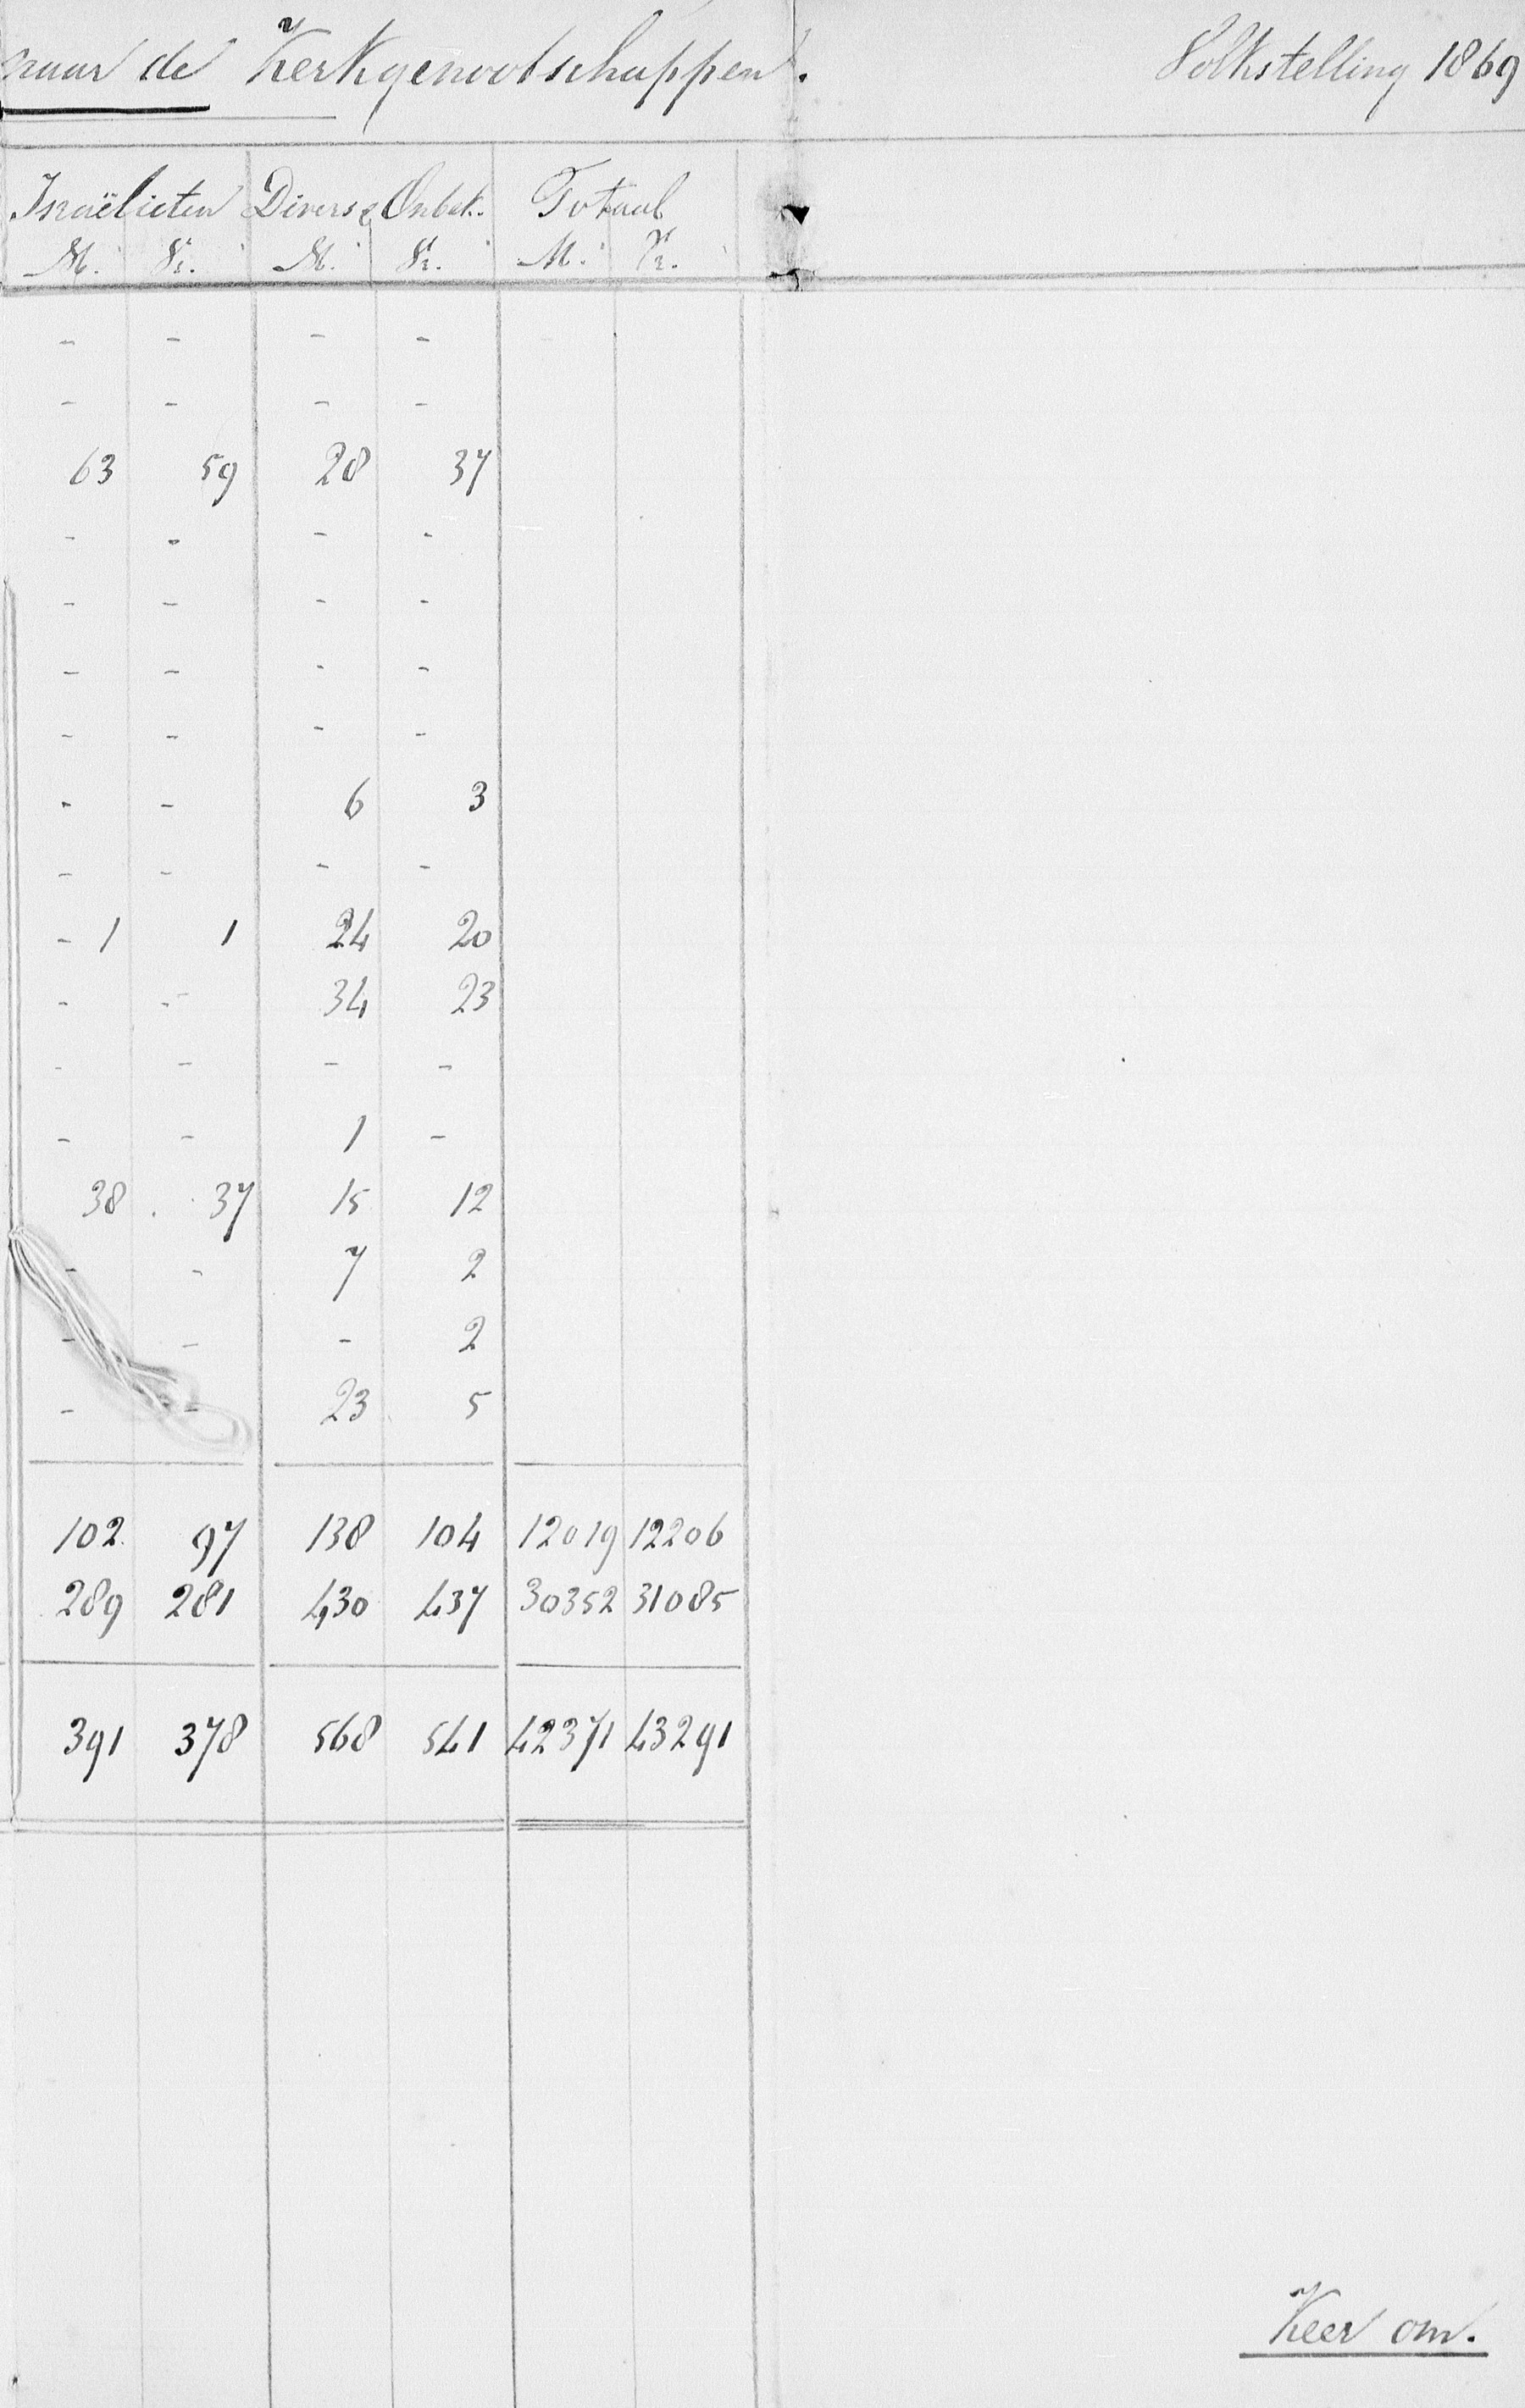 naar de Kerkgenootschappen. Volkstelling 1869
Israëlieten Diverse Onbek. Totaal
M. Vr. M. Vr. M. Vr.
- - - -
- - - -
63 59 28 37
- - - -
- - - -
- - - -
- - - -
- - 6 3
- - - -
- 1 1 24 20
- - 34 23
- - - -
- - 1 -
38 37 15 12
- - 7 2
- - - 2
- - 23 5
102 97 138 104 12019 12206
289 281 430 437 30352 31085
391 378 568 541 42371 43291
Keer om.